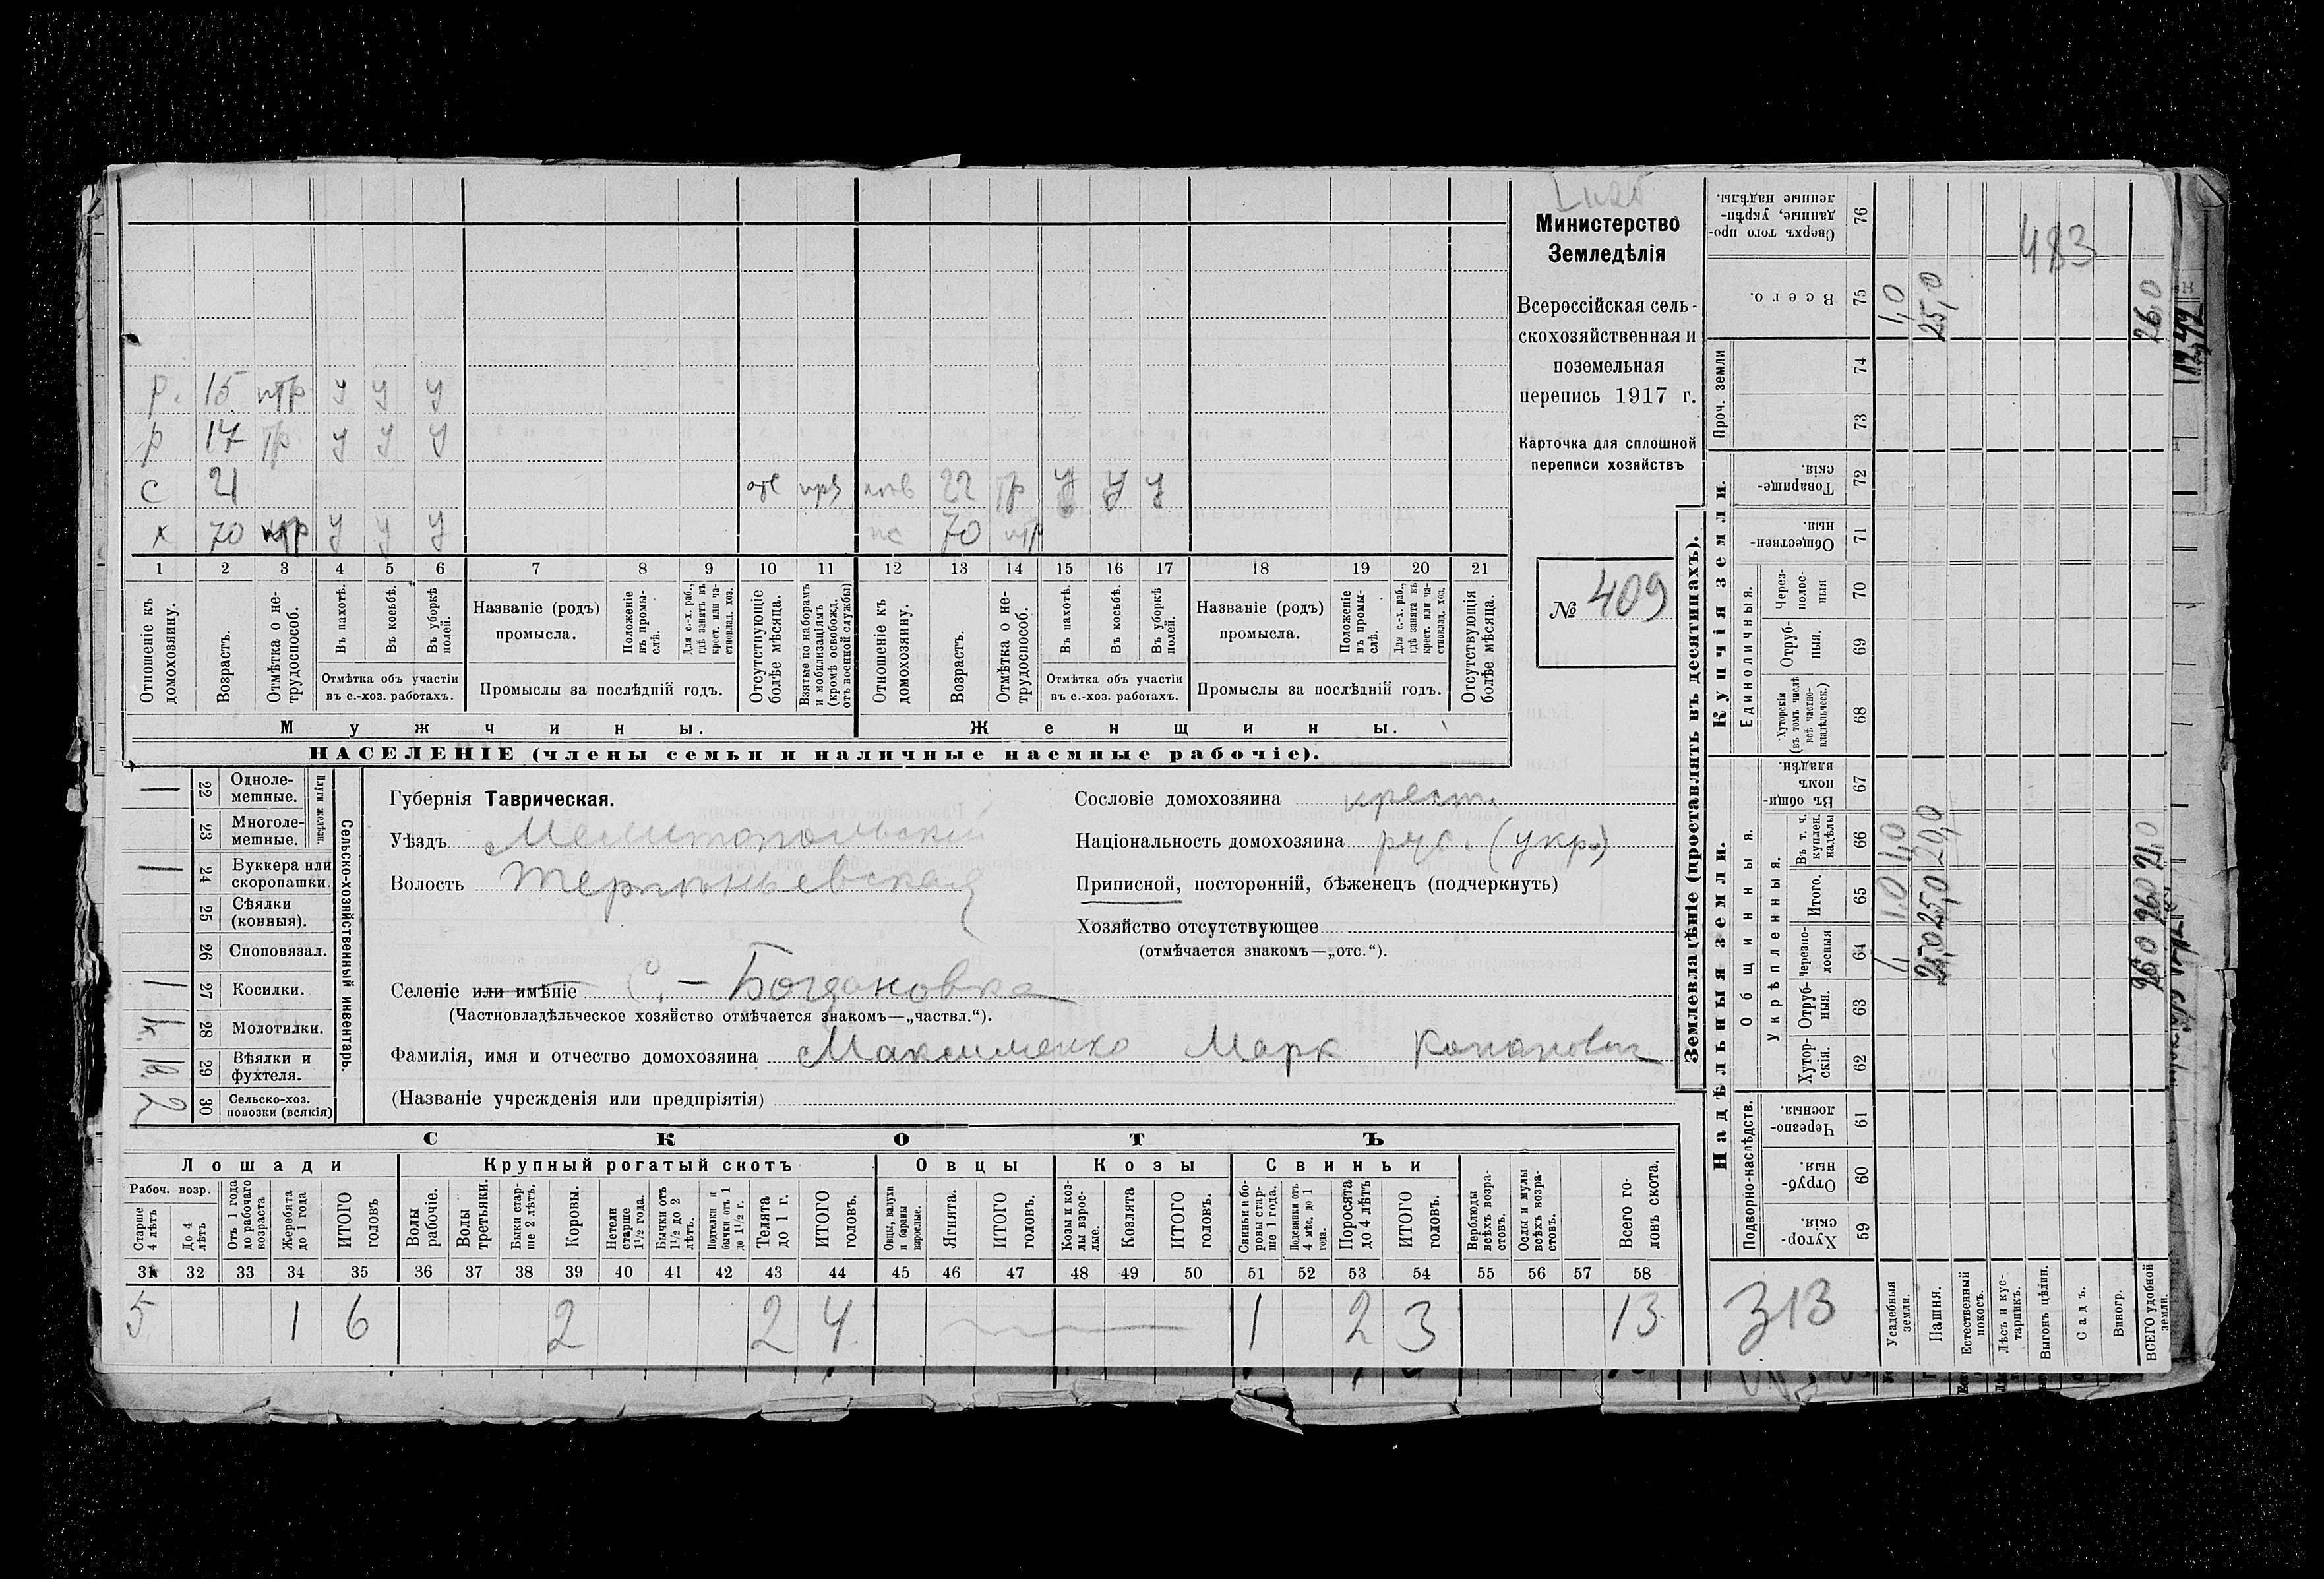 Министерство
Земледѣлія
Всероссійская сель-
скохозяйственная и
поземельная
перепись 1917 г.
Карточка для сплошной
переписи хозяйствъ
№ 409
р. 15 нтр у у у
р 17 тр у у у
с 21 отс 22 тр у у у
х 70 нтр у у у 70 нтр
1 2 3 4 5 6 7 8 9 10 11 12 13 14 15 16 17 18 19 20 21
Отношеніе къ домохозяину.
Возрастъ.
Отмѣтка о не-трудоспособ.
Въ пахотѣ.
Въ косьбѣ.
Въ уборкѣ полей.
Отмѣтка объ участіи
въ с.-хоз. работахъ.
Названіе (родъ)
промысла.
Положеніе въ промы-слѣ.
Для с.-х. раб., гдѣ занятъ въ крест. или ча-стновлад. хоз.
Промыслы за послѣдній годъ.
Отсутствующіе болѣе мѣсяца.
Взятые по наборамъ и мобилизаціямъ (кромѣ освобожд. отъ военной службы)
Отношеніе къ домохозяину.
Возрастъ.
Отмѣтка о не-трудоспособ.
Въ пахотѣ.
Въ косьбѣ.
Въ уборкѣ полей.
Отмѣтка объ участіи
въ с.-хоз. работахъ.
Названіе (родъ)
промысла.
Положеніе въ промы-слѣ.
Для с.-х. раб., гдѣ занята въ крест. или ча-стновлад. хоз.
Промыслы за послѣдній годъ.
Отсутствующія болѣе мѣсяца.
Мужчины. Женщины.
НАСЕЛЕНІЕ (члены семьи и наличные наемные рабочіе).
Сельско-хозяйственный инвентарь.
Плуги желѣзн.
1 22 Одноле-мешные.
23 Многоле-мешные.
1 24 Буккера или скоропашки.
25 Сѣялки (конныя).
26 Сноповязал.
1 27 Косилки.
28 Молотилки.
29 Вѣялки и фухтеля.
2 30 Сельско-хоз. повозки (всякія)
Губернія Таврическая.
Уѣздъ Мелитопольскій
Волость Терпѣньевская
Селеніе или имѣніе С.-Богдановка
(Частновладѣльческое хозяйство отмѣчается знакомъ—„частвл.“).
Фамилія, имя и отчество домохозяина Максименко Марк
(Названіе учрежденія или предпріятія)
Сословіе домохозяина крест.
Національность домохозяина рус. (укр.)
Приписной, посторонній, бѣженецъ (подчеркнуть)
Хозяйство отсутствующее
(отмѣчается знакомъ—„отс.“).
СКОТЪ
Лошади
Крупный рогатый скотъ
Овцы
Козы
Свиньи
Рабоч. возр.
Старше 4 лѣтъ
До 4 лѣтъ
Отъ 1 года до рабочаго возраста
Жеребята до 1 года
ИТОГО головъ
Волы рабочіе.
Волы третьяки.
Быки стар-ше 2 лѣтъ.
Коровы.
Нетели старше 1½ года.
Бычки отъ 1½ до 2 лѣтъ.
Подтелки и бычки отъ 1 до 1½ г.
Телята до 1 г.
ИТОГО головъ.
Овцы, валухи и бараны взрослые.
Ягнята.
ИТОГО головъ.
Козы и коз-лы взрос-лые.
Козлята
ИТОГО головъ.
Свиньи и бо-ровы стар-ше 1 года.
Подсвинки отъ 4 мѣс. до 1 года.
Поросята до 4 лѣтъ
ИТОГО головъ.
Верблюды всѣхъ возра-стовъ.
Ослы и мулы всѣхъ возра-стовъ.
Всего го-ловъ скота.
31 32 33 34 35 36 37 38 39 40 41 42 43 44 45 46 47 48 49 50 51 52 53 54 55 56 57 58
5 1 6 2 2 4 1 2 3 13
Землевладѣніе (проставлять въ десятинахъ).
Надѣльныя земли. Купчія земли.
Подворно-наслѣдств.
Общинныя.
Укрѣпленныя.
Единоличныя.
Проч. земли
Хутор-скія. 59
Отруб-ныя. 60
Черезпо-лосныя. 61
Хутор-скія. 62
Отруб-ныя. 63
Черезпо-лосныя 64
Итого. 65
Въ т. ч. куплен. надѣлы 66
Въ общин-номъ владѣн. 67
Хуторскія (въ томъ числѣ всѣ частно-владѣльческ.) 68
Отруб-ныя. 69
Через-полос-ныя 70
Обществен-ныя. 71
Товарище-скія. 72
73
74
Всего. 75
Сверхъ того про-данные, укрѣп-ленные надѣлы. 76
313
483
Усадебныя земли. 1,0 1,0 1,0
Пашня. 25,0 25,0 20,0 25,0
Естественный покосъ.
Лѣсъ и кус-тарникъ.
Выгонъ цѣлин.
Садъ.
Виногр.
ВСЕГО удобной земли. 26,0 26,0 21,0 26,0